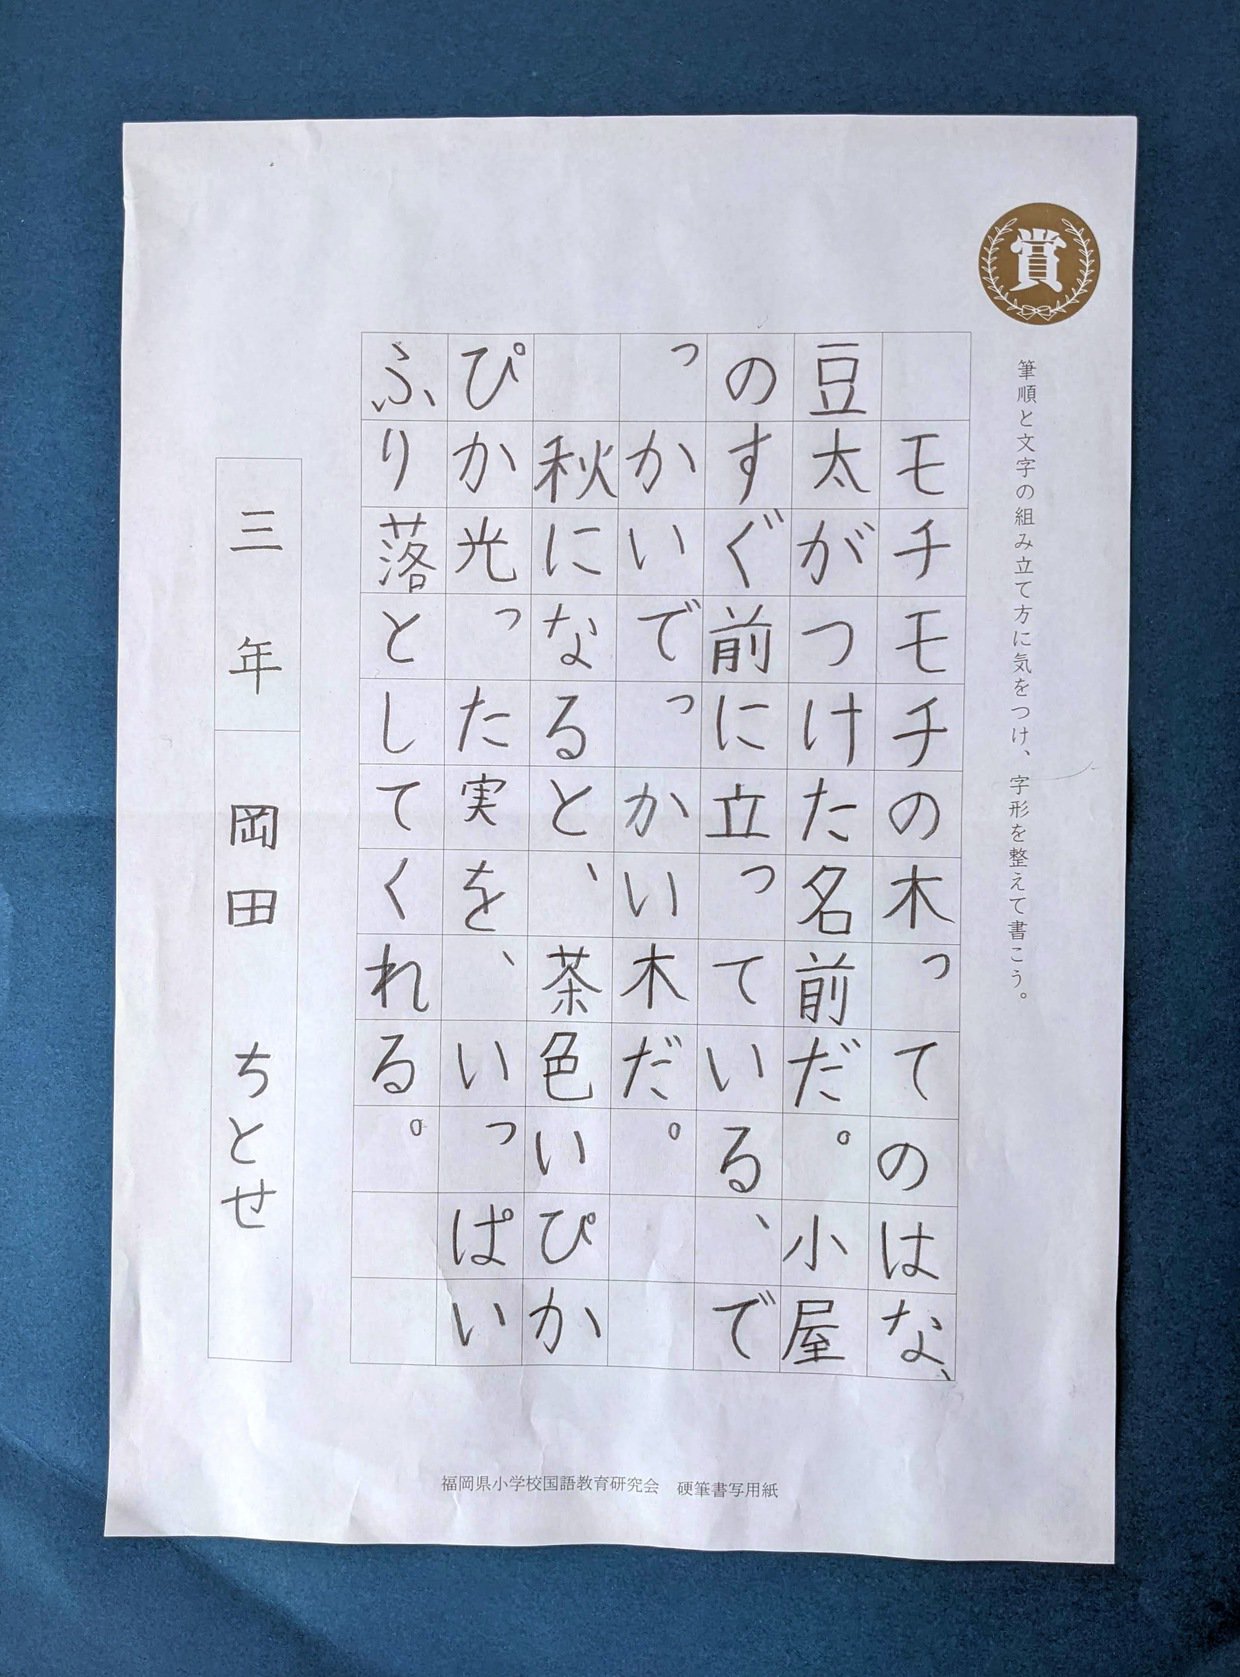 賞
筆順と文字の組み立て方に気をつけ、字形を整えて書こう。
モチモチの木ってのはな、
豆太がつけた名前だ。小屋
のすぐ前に立っている、で
っかいでっかい木だ。
秋になると、茶色いぴか
ぴか光った実を、いっぱい
ふり落としてくれる。
三年 岡田 ちとせ
福岡県小学校国語教育研究会 硬筆書写用紙